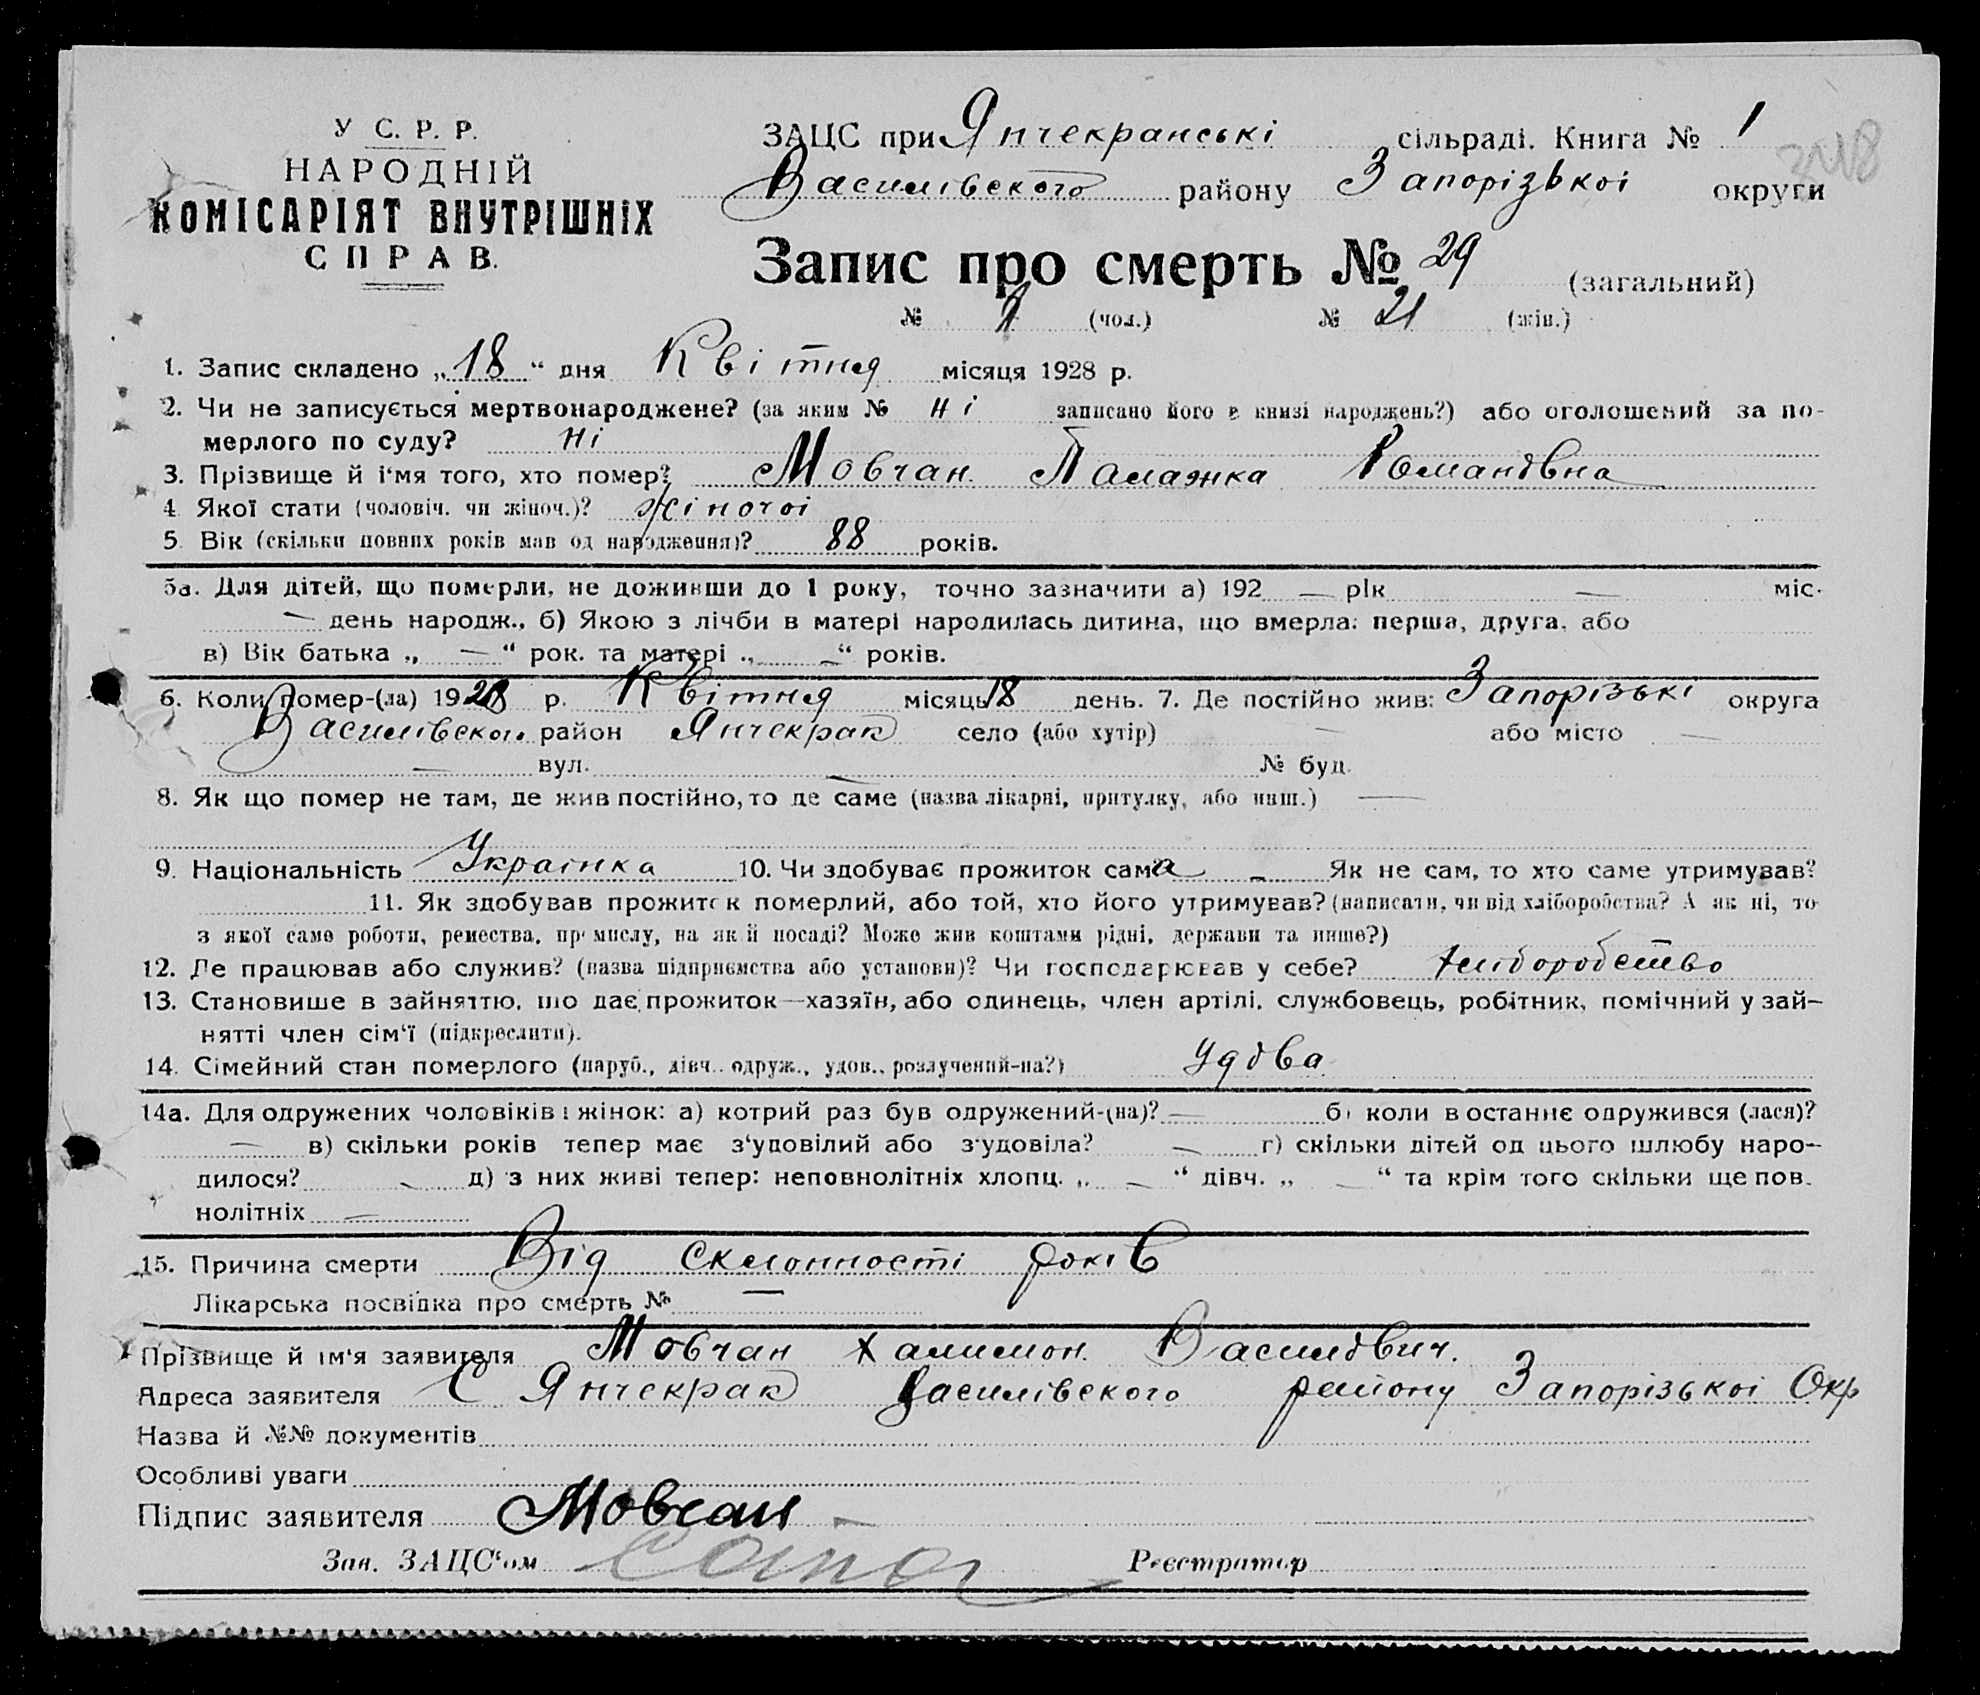 У С. Р. Р.
НАРОДНІЙ
КОМІСАРІЯТ ВНУТРІШНІХ
СПРАВ.
ЗАЦС при Янчекранські сільраді. Книга № 1
Василівского району Запорізькоі округи
Запис про смерть № 29 (загальний)
№ (чол.) № 21 (жін.)
1. Запис складено „18“ дня Квітня місяця 1928 р.
2. Чи не записується мертвонароджене? (за яким № ні записано його в книзі народжень?) або оголошений за по-
мерлого по суду? ні
3. Прізвище й і‘мя того, хто помер? Мовчан Палажка Романовна
4. Якої стати (чоловіч. чи жіноч.)? жіночоі
5. Вік (скільки повних років мав од народження)? 88 років.
5а. Для дітей, що померли, не доживши до 1 року, точно зазначити а) 192 — рік — міс.
— день народж., б) Якою з лічби в матері народилась дитина, що вмерла: перша, друга, або
в) Вік батька „ — “ рок. та матері „ — “ років.
6. Коли помер-(ла) 1928 р. Квітня місяць 18 день. 7. Де постійно жив: Запорізькі округа
Василівскои район Янчекрак село (або хутір) — або місто —
— вул. — № буд.
8. Як що помер не там, де жив постійно, то де саме (назва лікарні, притулку, або инш.) —
9. Національність Украінка 10. Чи здобуває прожиток сама - Як не сам, то хто саме утримував?
11. Як здобував прожиток померлий, або той, хто його утримував? (написати, чи від хліборобства? А як ні, то
з якої саме роботи, ремества, промислу, на якій посаді? Може жив коштами рідні, держави та инше?)
12. Де працював або служив? (назва підприємства або установи)? Чи господарював у себе? хліборобство
13. Становище в зайняттю, що дає прожиток—хазяїн, або одинець, член артілі, службовець, робітник, помічний у зай-
нятті член сім‘ї (підкреслити).
14. Сімейний стан померлого (паруб., дівч., одруж., удов., розлучений-на?) Удова
14а. Для одружених чоловіків і жінок: а) котрий раз був одружений-(на)? — б) коли востаннє одружився (лася)?
— в) скільки років тепер має з‘удовілий або з‘удовіла? — г) скільки дітей од цього шлюбу наро-
дилося? - д) з них живі тепер: неповнолітніх хлопц. „ — “ дівч. „ — “ та крім того скільки ще пов.
нолітніх —
15. Причина смерти Від склонности років
Лікарська посвідка про смерть № —
Прізвище й ім‘я заявителя Мовчан Халимон Василович.
Адреса заявителя С Янчекрак Василівского району Запорізькоі Окр
Назва й №№ документів
Особливі уваги
Підпис заявителя Мовчан
Зав. ЗАЦС‘ом
Реєстратор